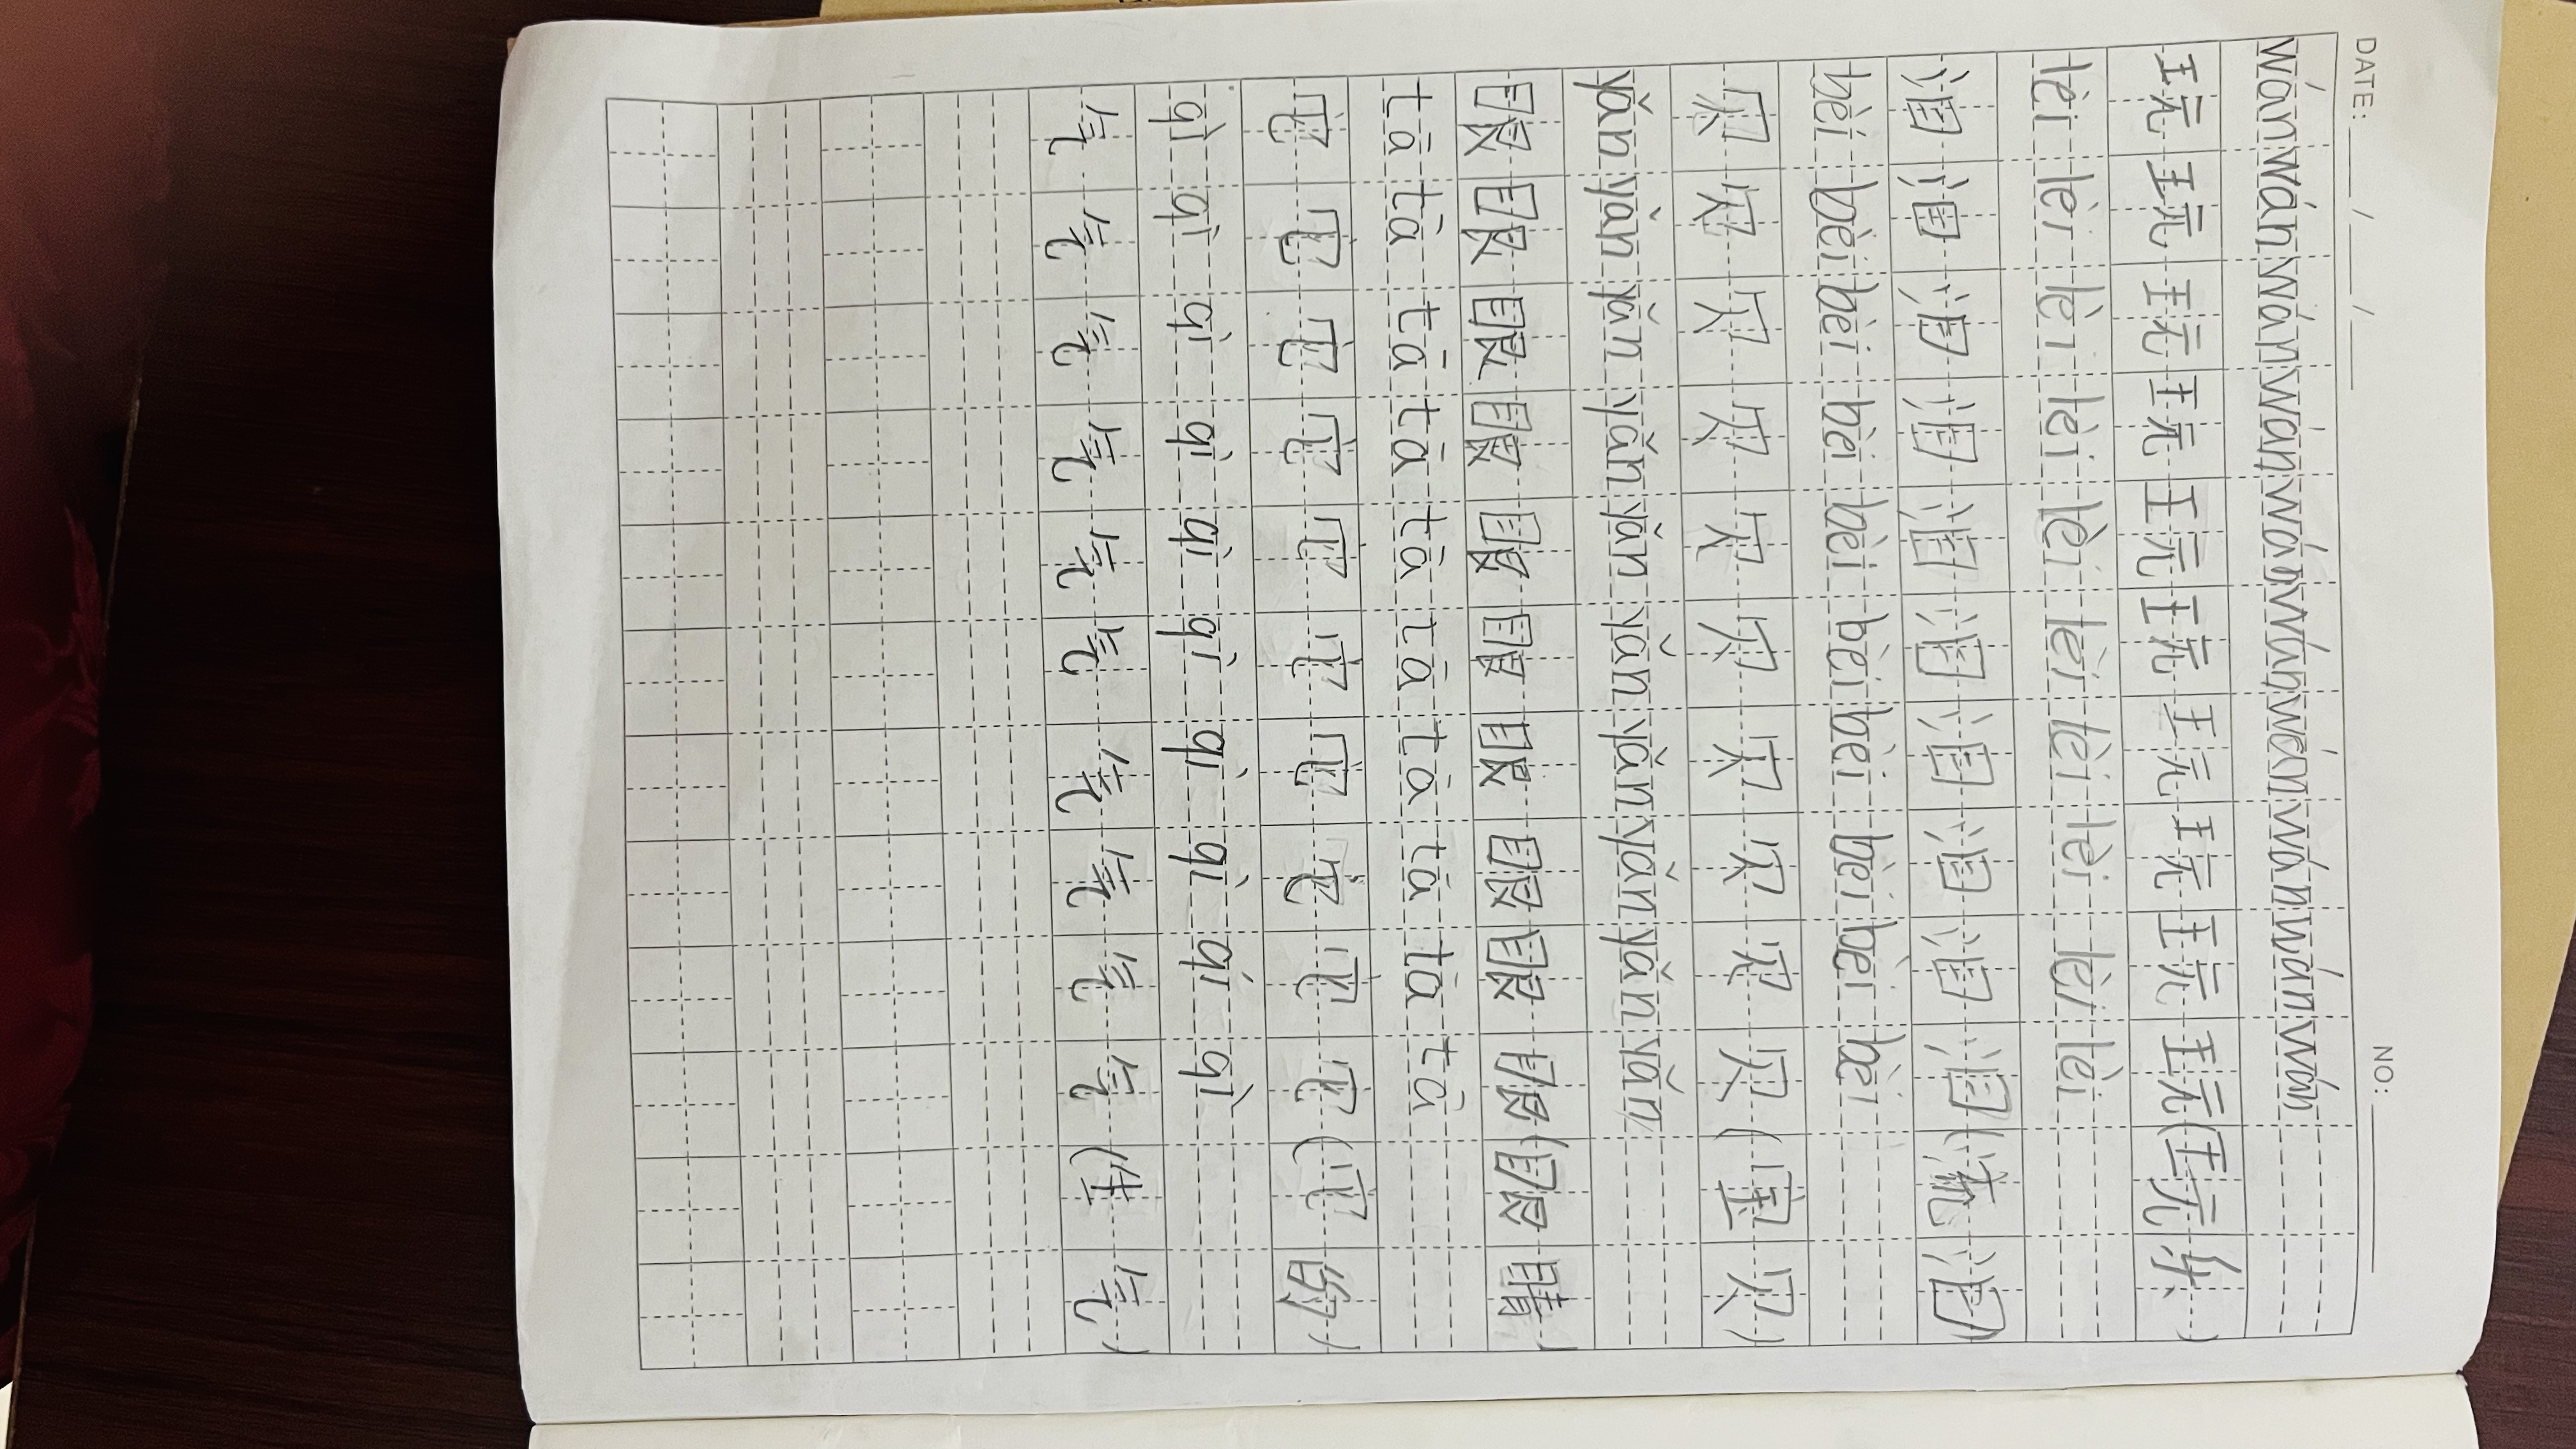 DATE: / / NO:
wán wán wán wán wán wán wán wán wán wán
玩玩玩玩玩玩玩玩玩玩(玩乐)
lèi lèi lèi lèi lèi lèi lèi lèi lèi lèi
泪泪泪泪泪泪泪泪泪泪(流泪)
bèi bèi bèi bèi bèi bèi bèi bèi bèi bèi
贝贝贝贝贝贝贝贝贝贝(宝贝)
yǎn yǎn yǎn yǎn yǎn yǎn yǎn yǎn yǎn yǎn
眼眼眼眼眼眼眼眼眼眼(眼睛)
tā tā tā tā tā tā tā tā tā tā
它它它它它它它它它它(它们)
qì qì qì qì qì qì qì qì qì qì
气气气气气气气气气气(生气)